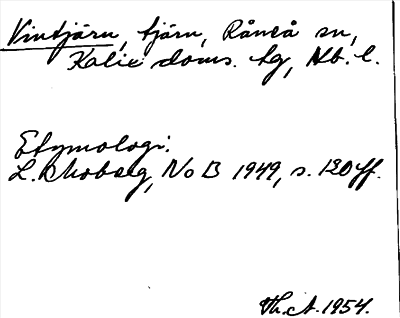 Vintjärn, tjärn, Råneå sn,
Kalix doms. tg, Nb. l.
Etymologi:
L. Moberg, NoB 1949, s. 120 ff.
Th.A. 1954.